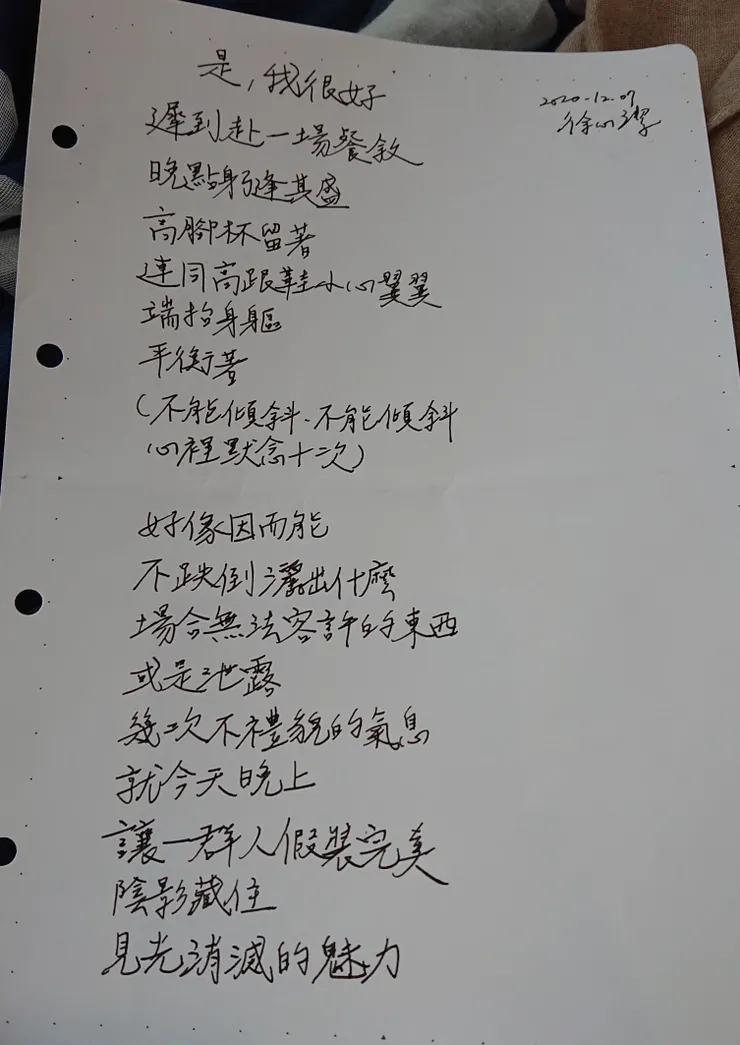 是，我很好
2020.12.07
徐心潔
遲到赴一場餐敘
晚點躬逢其盛
高腳杯留著
連同高跟鞋小心翼翼
端抬身軀
平衡著
（不能傾斜、不能傾斜
心裡默念十次）
好像因而能
不跌倒灑出什麼
場合無法容許的東西
或是泄露
幾次不禮貌的氣息
就今天晚上
讓一群人假裝完美
陰影藏住
見光消滅的魅力